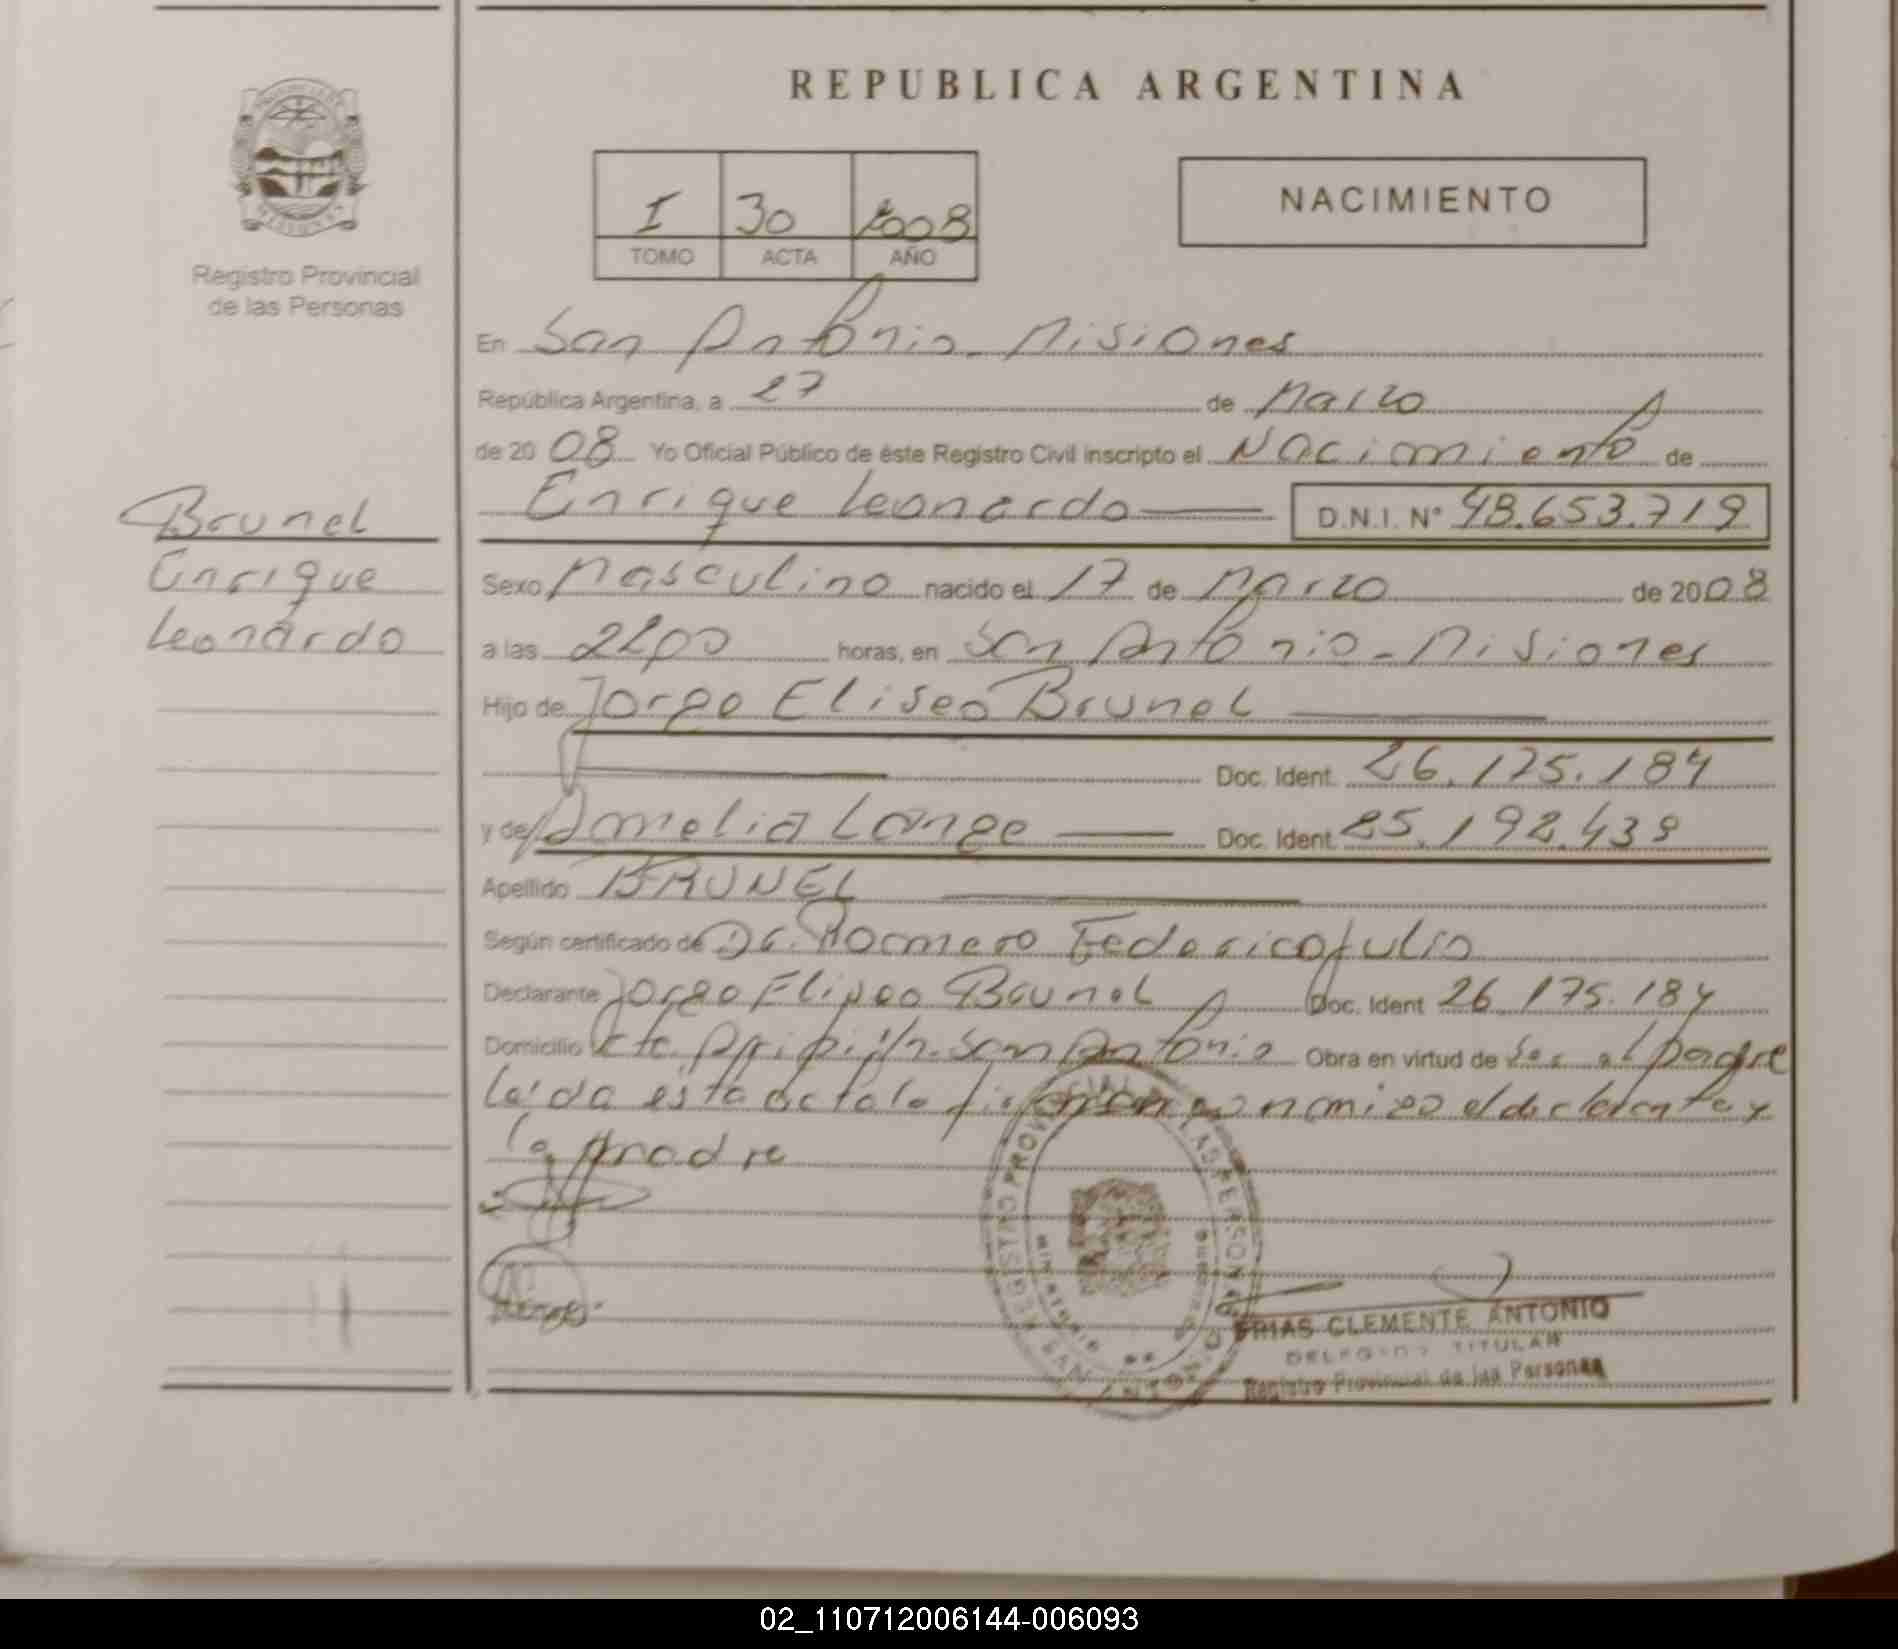 REPUBLICA ARGENTINA
I 30 2008
TOMO ACTA AÑO
NACIMIENTO
Registro Provincial
de las Personas
En San Antonio - Misiones
República Argentina, a 27 de Marzo
de 2008 Yo Oficial Público de éste Registro Civil inscripto el Nacimiento de
Enrique Leonardo D.N.I. N° 48.653.719
Brunel
Enrique
Leonardo
Sexo Masculino nacido el 17 de Marzo de 2008
a las horas, en San Antonio - Misiones
Hijo de Jorge Eliseo Brunel
Doc. Ident. 26.175.184
y de Amelia Lange Doc. Ident. 25.192.439
Apellido BRUNEL
Según certificado de Dr. Romero Federico Julio
Declarante Jorge Eliseo Brunel Doc. Ident 26.175.184
Domicilio San Antonio Obra en virtud de Ser el padre
Leida esta acta la firman conmigo el declarante y
la madre
REGISTRO PROVINCIAL DE LAS PERSONAS
SAN ANTONIO
FRIAS CLEMENTE ANTONIO
DELEGADO TITULAR
Registro Provincial de las Personas
02_110712006144-006093